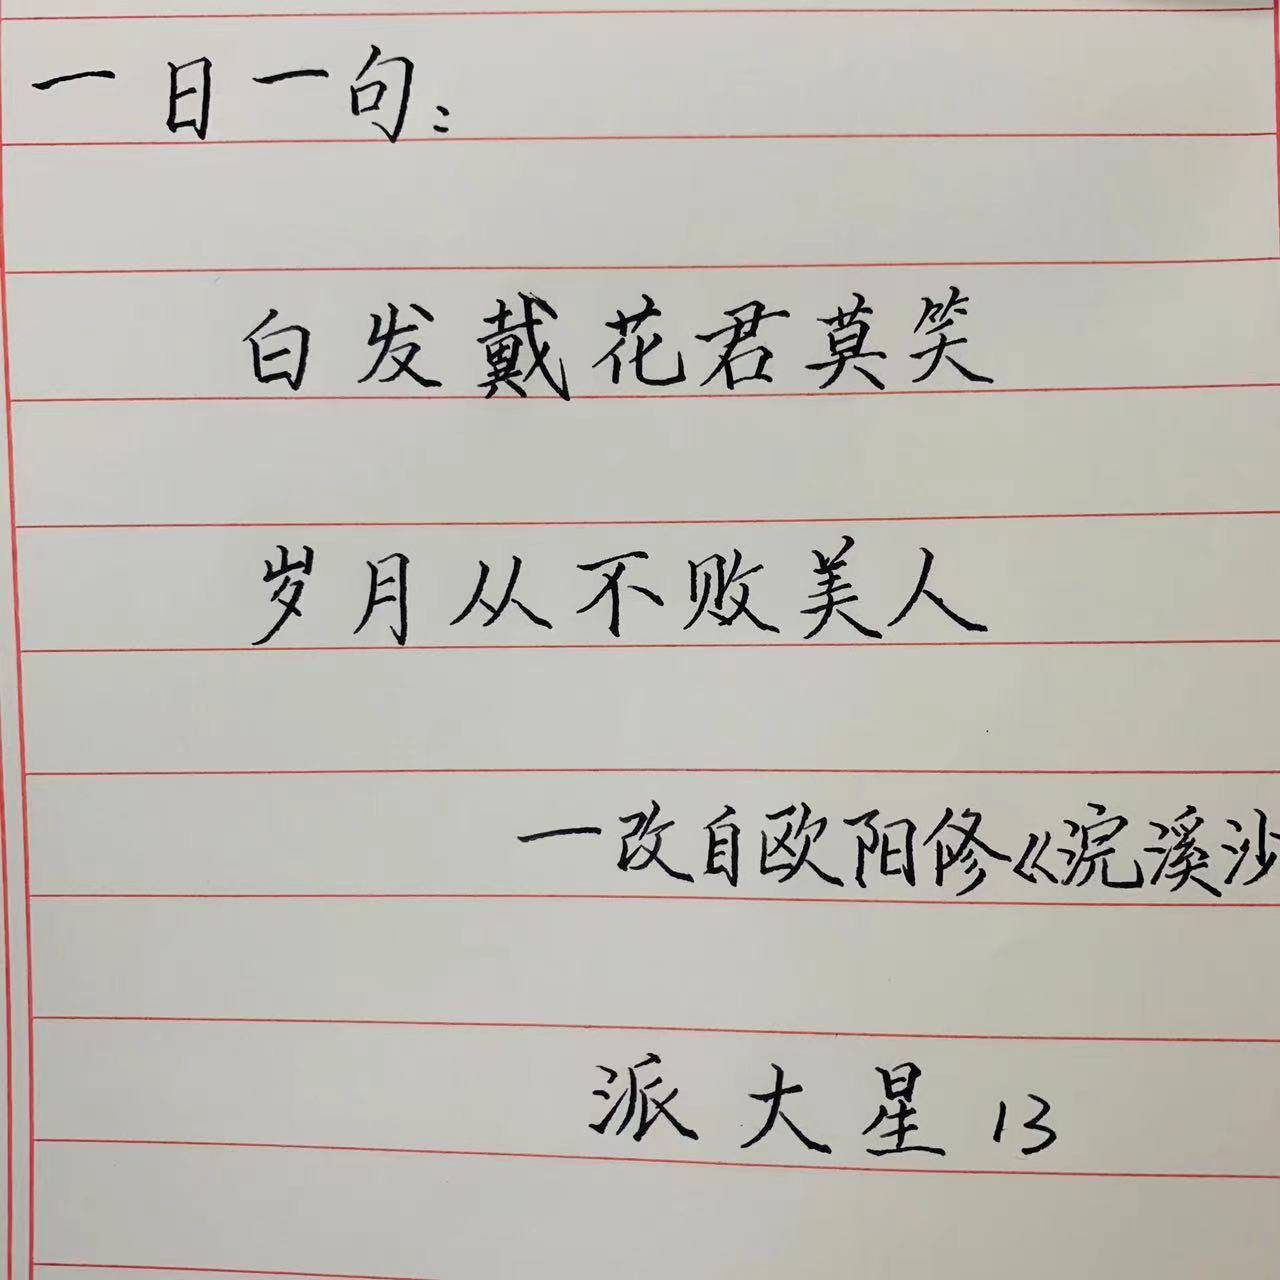 一日一句：
白发戴花君莫笑
岁月从不败美人
一改自欧阳修《浣溪沙
派大星 13